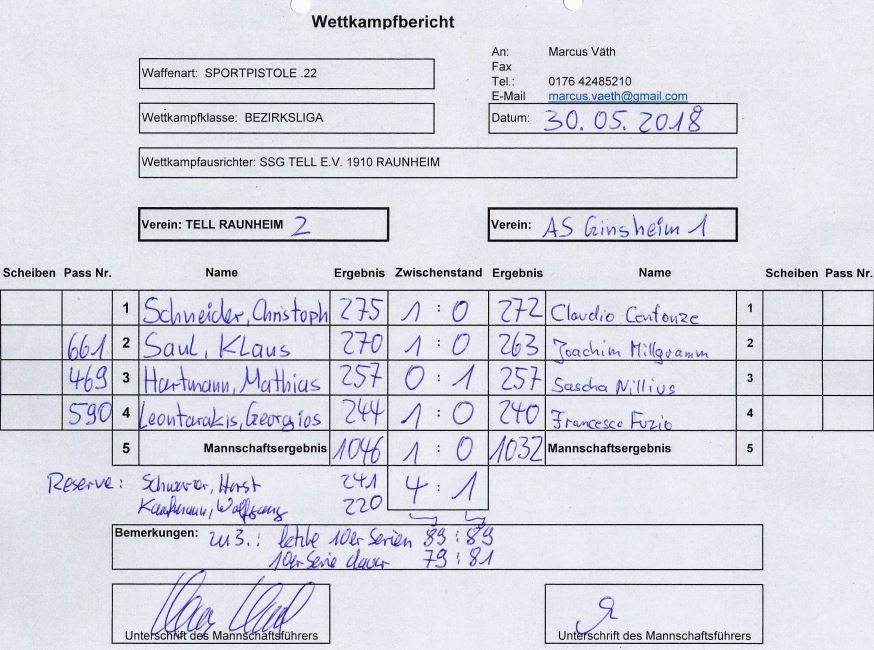 Wettkampfbericht
An: Marcus Väth
Fax
Waffenart: SPORTPISTOLE .22
Tel.: 0176 42485210
E-Mail marcus.vaeth@gmail.com
Wettkampfklasse: BEZIRKSLIGA
Datum: 30.05.2018
Wettkampfausrichter: SSG TELL E.V. 1910 RAUNHEIM
Verein: TELL RAUNHEIM 2 Verein: AS Ginsheim 1
Scheiben Pass Nr. Name Ergebnis Zwischenstand Ergebnis Name Scheiben Pass Nr.
1 Schneider, Christoph 275 1 : 0 272 Claudio Centonze 1
661 2 Saul, Klaus 270 1 : 0 263 Joachim Millgramm 2
469 3 Hartmann, Mathias 257 0 : 1 257 Sascha Nillius 3
590 4 Leontarakis, Georgios 244 1 : 0 240 Francesco Fuzio 4
5 Mannschaftsergebnis 1046 1 : 0 1032 Mannschaftsergebnis 5
Reserve: Schwarzer, Horst 241 4 : 1
Kaufmann, Wolfgang 220
Bemerkungen: zu 3.: letzte 10er Serien 89 : 89
10er Serie davor 79 : 81
Unterschrift des Mannschaftsführers Unterschrift des Mannschaftsführers